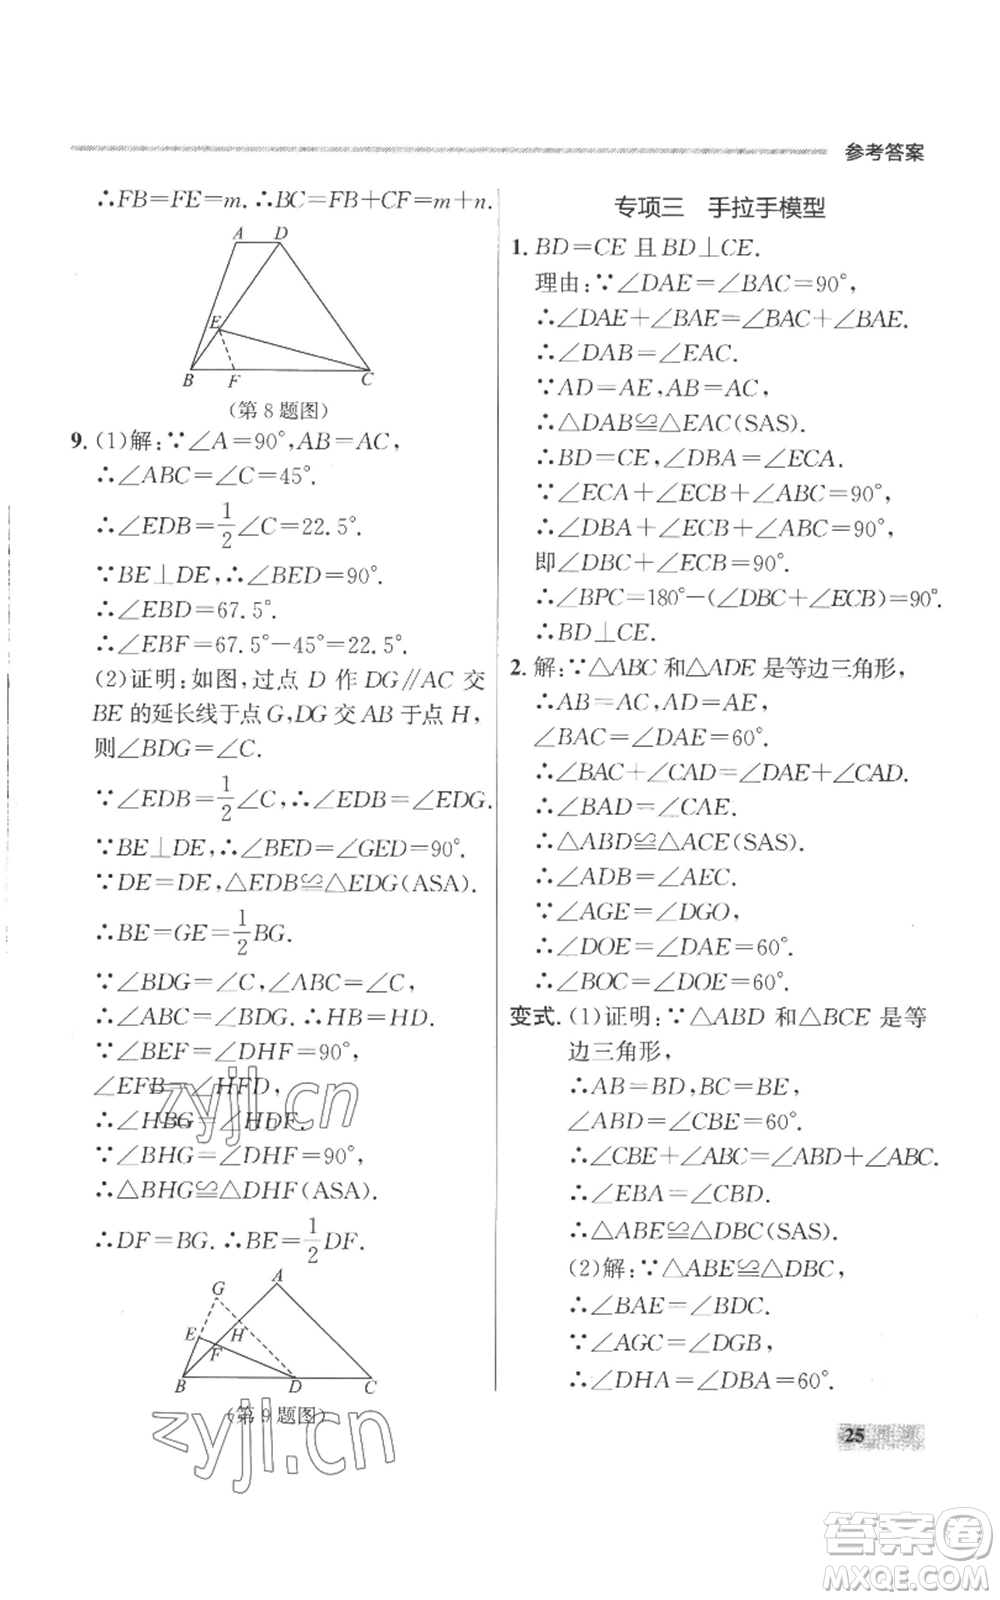 参考答案
∴FB=FE=m. ∴BC=FB+CF=m+n.
A D
E
B F C
(第8题图)
9. (1)解:∵∠A=90°,AB=AC,
∴∠ABC=∠C=45°.
∴∠EDB=1/2∠C=22.5°.
∵BE⊥DE,∴∠BED=90°.
∴∠EBD=67.5°.
∴∠EBF=67.5°−45°=22.5°.
(2)证明:如图,过点 D 作 DG∥AC 交
BE 的延长线于点 G,DG 交 AB 于点 H,
则∠BDG=∠C.
∵∠EDB=1/2∠C,∴∠EDB=∠EDG.
∵BE⊥DE,∴∠BED=∠GED=90°.
∵DE=DE,△EDB≌△EDG(ASA).
∴BE=GE=1/2BG.
∵∠BDG=∠C,∠ABC=∠C,
∴∠ABC=∠BDG. ∴HB=HD.
∵∠BEF=∠DHF=90°,
∠EFB=∠HFD,
∴∠HBG=∠HDF.
∵∠BHG=∠DHF=90°,
∴△BHG≌△DHF(ASA).
∴DF=BG. ∴BE=1/2DF.
G A
E H
F
B D C
(第9题图)
专项三 手拉手模型
1. BD=CE 且 BD⊥CE.
理由:∵∠DAE=∠BAC=90°,
∴∠DAE+∠BAE=∠BAC+∠BAE.
∴∠DAB=∠EAC.
∵AD=AE,AB=AC,
∴△DAB≌△EAC(SAS).
∴BD=CE,∠DBA=∠ECA.
∵∠ECA+∠ECB+∠ABC=90°,
∴∠DBA+∠ECB+∠ABC=90°,
即∠DBC+∠ECB=90°.
∴∠BPC=180°−(∠DBC+∠ECB)=90°.
∴BD⊥CE.
2. 解:∵△ABC 和△ADE 是等边三角形,
∴AB=AC,AD=AE,
∠BAC=∠DAE=60°.
∴∠BAC+∠CAD=∠DAE+∠CAD.
∴∠BAD=∠CAE.
∴△ABD≌△ACE(SAS).
∴∠ADB=∠AEC.
∵∠AGE=∠DGO,
∴∠DOE=∠DAE=60°.
∴∠BOC=∠DOE=60°.
变式. (1)证明:∵△ABD 和△BCE 是等
边三角形,
∴AB=BD,BC=BE,
∠ABD=∠CBE=60°.
∴∠CBE+∠ABC=∠ABD+∠ABC.
∴∠EBA=∠CBD.
∴△ABE≌△DBC(SAS).
(2)解:∵△ABE≌△DBC,
∴∠BAE=∠BDC.
∵∠AGC=∠DGB,
∴∠DHA=∠DBA=60°.
25
zyjl.cn
zyjl.cn
答案圈
MXQE.COM